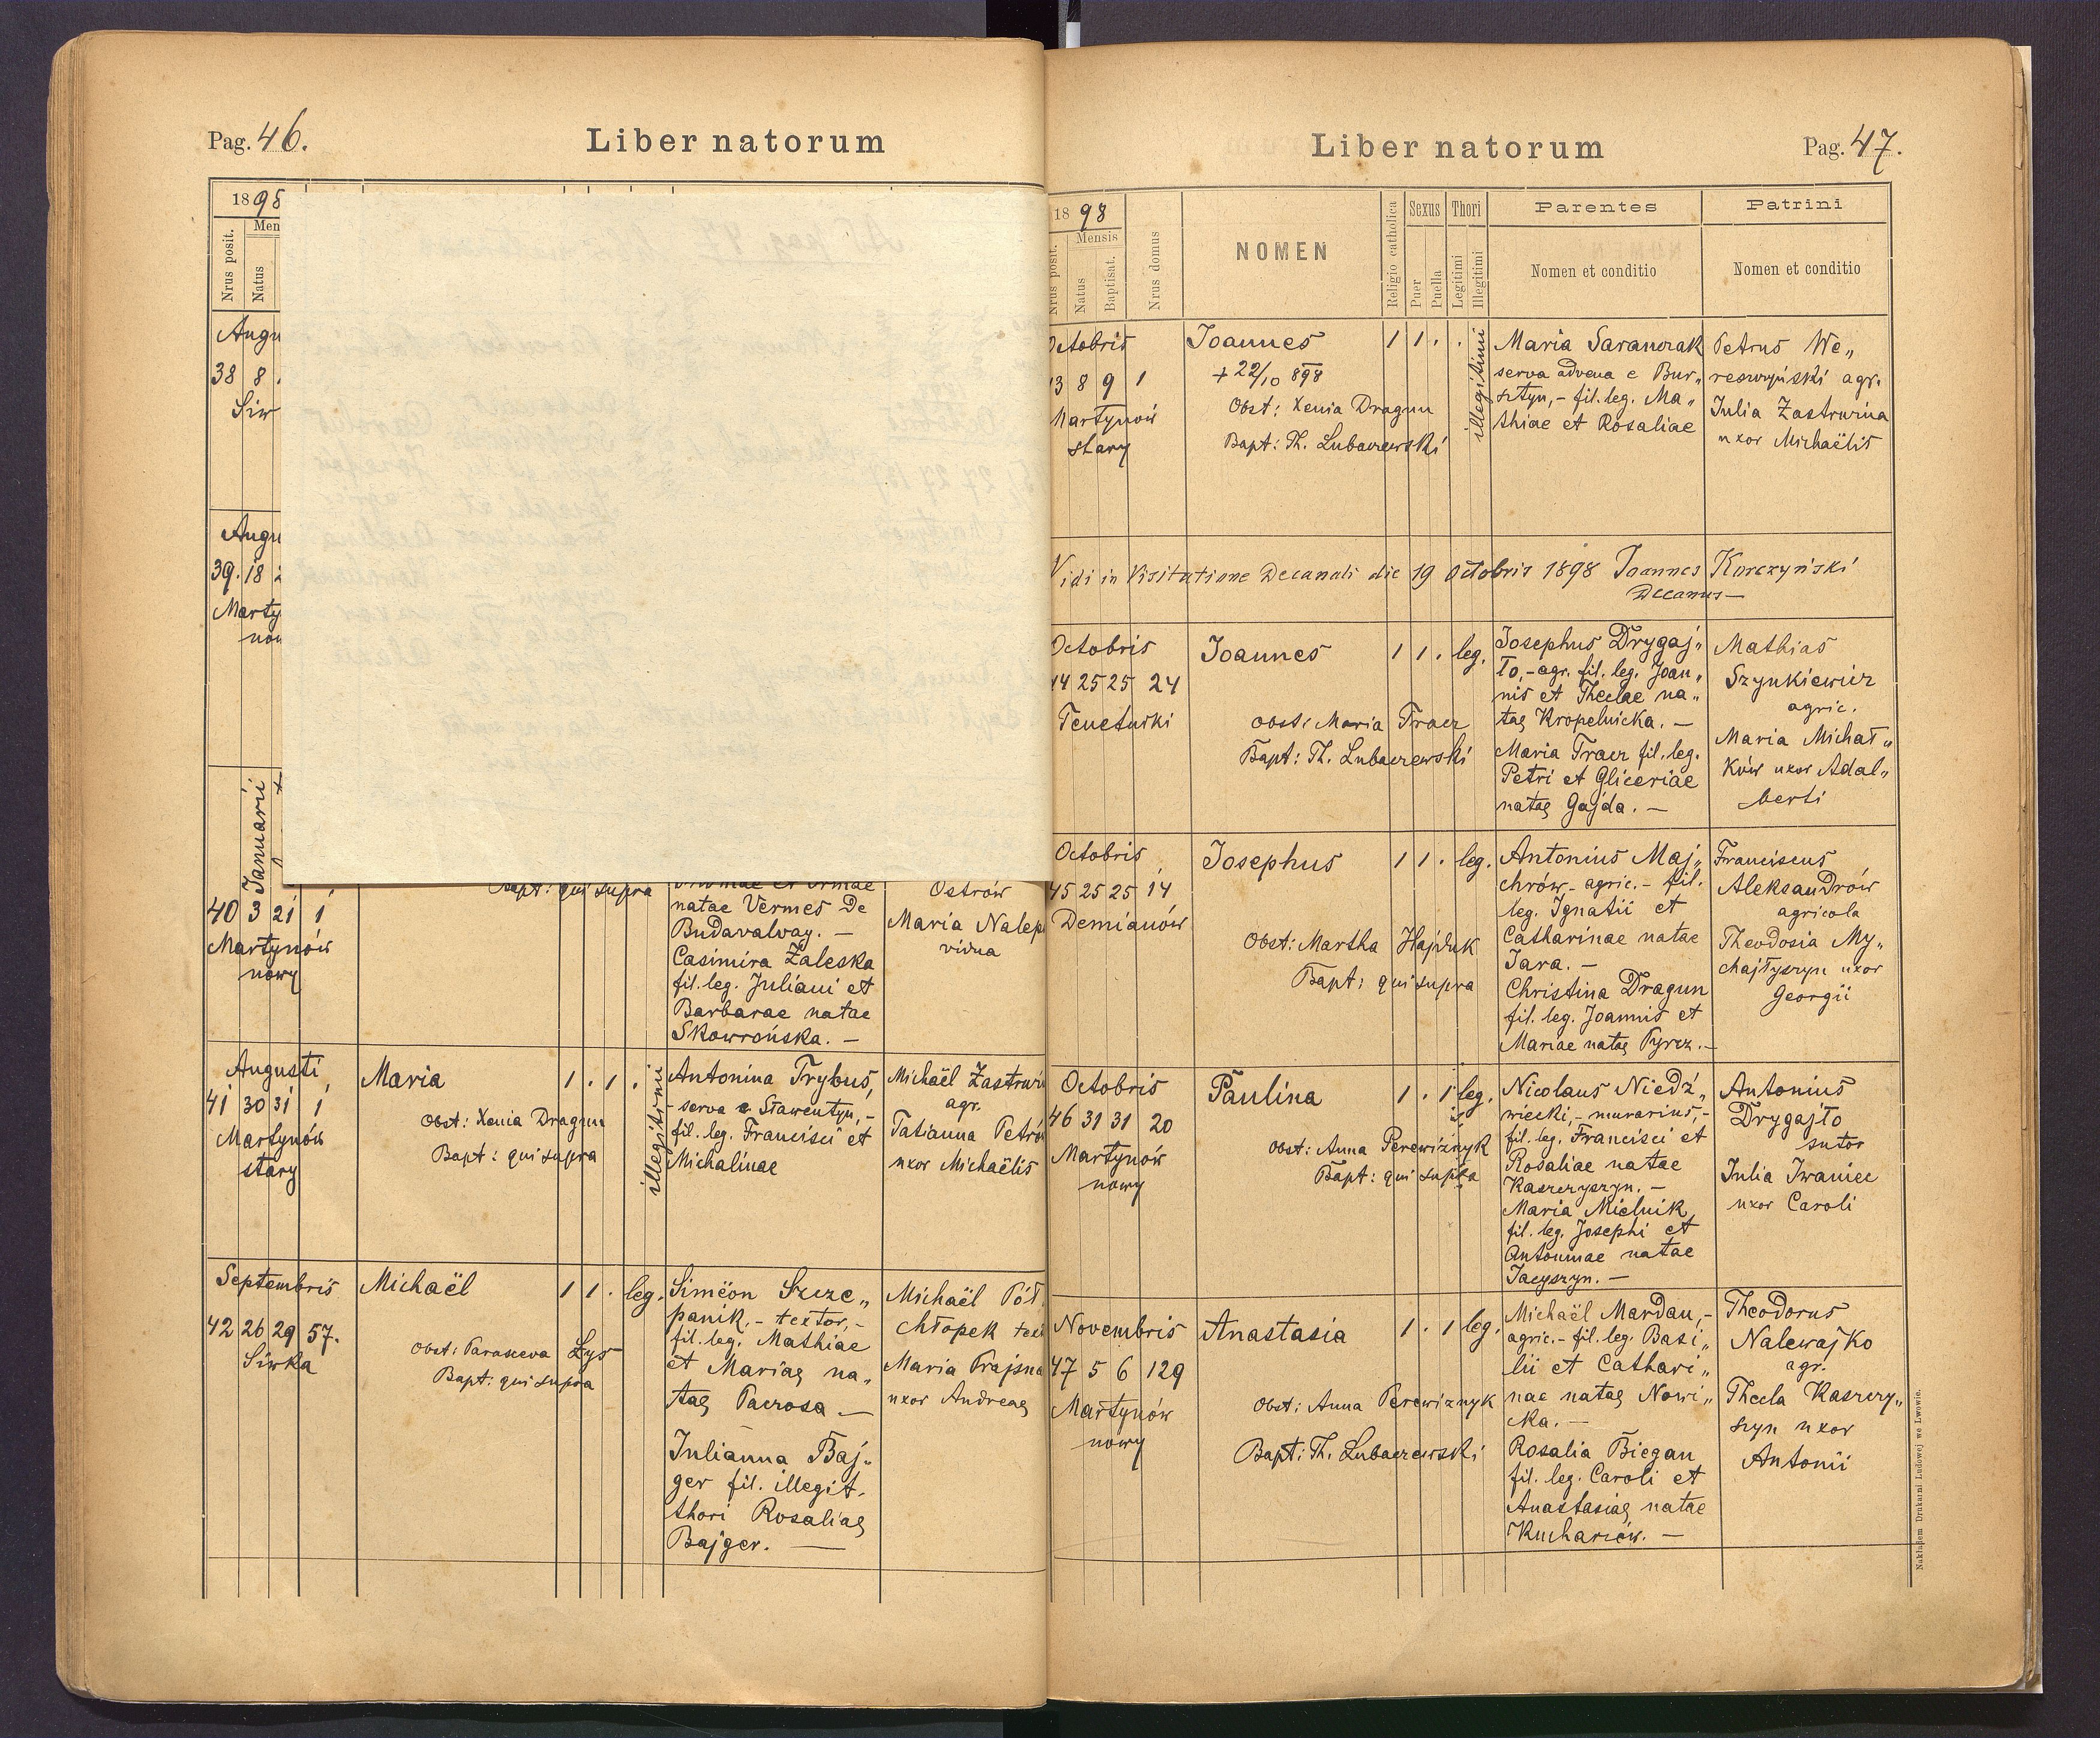 Pag. 46.
Liber natorum
1898
Nrus posit.
Natus
Men
Augu
38 8
Siw
Augu
39. 18 2
Marty
now
Januarii
40 3 21 1
Martynów
nowy
Bapt: qui supra
natae Vermes de
Budavalvay. —
Casimira Zaleska
fil. leg. Juliani et
Barbarae natae
Skowrońska. —
Ostrów
Maria Nalep
vidua
Augusti
41 30 31 1
Martynów
stary
Maria
Obst: Xenia Dragun
Bapt: qui supra
1 . 1 .
illegitimi
Antonina Trybus,
- serva e Sławentyn, -
fil. leg. Francisci et
Michalinae
Michaël Zastrw
agr.
Tatianna Petrów
uxor Michaëlis
Septembris
42 26 29 57.
Siwka
Michaël
Obst: Parasceva Lys
Bapt: qui supra
1 1 . leg.
Simëon Szcze„
panik, - textor, -
fil. leg. Mathiae
et Mariae na„
tae Pacrosa. —
Julianna Baj-
ger fil. illegit.
thori Rosaliae
Bajger. —
Michaël Pół
chłopek tex
Maria Prajsna
uxor Andreae
Liber natorum
Pag. 47.
1898
Nrus posit.
Mensis
Natus
Baptisat.
Nrus domus
NOMEN
Religio catholica
Sexus
Puer
Puella
Thori
Legitimi
Illegitimi
Parentes
Nomen et conditio
Patrini
Nomen et conditio
Octobris
43 8 9 1
Martynów
stary
Joannes
+ 22/10 898
Obst: Xenia Dragun
Bapt: Th. Lubaczewski
1 1 . .
illegitimi
Maria Saranczak
serva advena e Bur„
sztyn, - fil. leg. Ma„
thiae et Rosaliae
Petrus We„
reszczyński agr.
Julia Zastrwina
uxor Michaëlis
Vidi in Visitatione Decanali die 19 Octobris 1898 Joannes Korczyński
Decanus —
Octobris
44 25 25 24
Tenetniki
Joannes
Obst: Maria Tracz
Bapt: Th. Lubaczewski
1 1 . leg.
Josephus Drygaj„
ło, - agr. fil. leg. Joan„
nis et Theclae na„
tae Kropelnicka. —
Maria Tracz fil. leg.
Petri et Gliceriae
natae Gajda. —
Mathias
Szynkiewicz
agric.
Maria Michał„
ków uxor Adal„
berti
Octobris
45 25 25 14
Demianów
Josephus
Obst: Martha Hajduk
Bapt: qui supra
1 1 . leg.
Antonius Maj„
chrów - agric. - fil.
leg. Ignatii et
Catharinae natae
Jara. —
Christina Dragun
fil. leg. Joannis et
Mariae natae Pyrcz. —
Franciscus
Aleksandrów
agricola
Theodosia My„
chajłyszyn uxor
Georgii
Octobris
46 31 31 20
Martynów
nowy
Paulina
Obst: Anna Perewiznyk
Bapt: qui supra
1 . 1 leg.
Nicolaus Niedź„
wiecki, - murarius, -
fil. leg. Francisci et
Rosaliae natae
Kaszczyszyn. —
Maria Mielnik
fil. leg. Josephi et
Antoninae natae
Jacyszyn. —
Antonius
Drygajło
sutor
Julia Iwaniec
uxor Caroli
Novembris
47 5 6 129
Martynów
nowy
Anastasia
Obst: Anna Perewiznyk
Bapt: Th. Lubaczewski
1 . 1 leg.
Michaël Mardan, -
agric. - fil. leg. Basi„
lii et Cathari„
nae natae Nowi„
cka. —
Rosalia Biegan
fil. leg. Caroli et
Anastasiae natae
Kuchariów. —
Theodorus
Nalewajko
agr.
Thecla Kaszczy„
szyn uxor
Antonii
Nakładem Drukarni Ludowej we Lwowie.